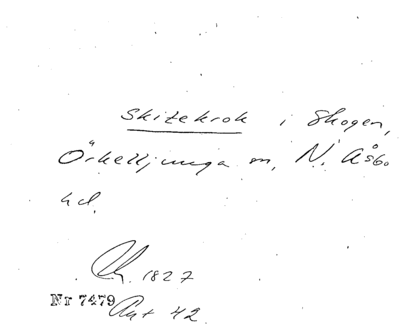 Skitekrok i Skogen,
Örkelljunga sn, N. Åsbo
hd.
1827
Nr 7479 Ant 42